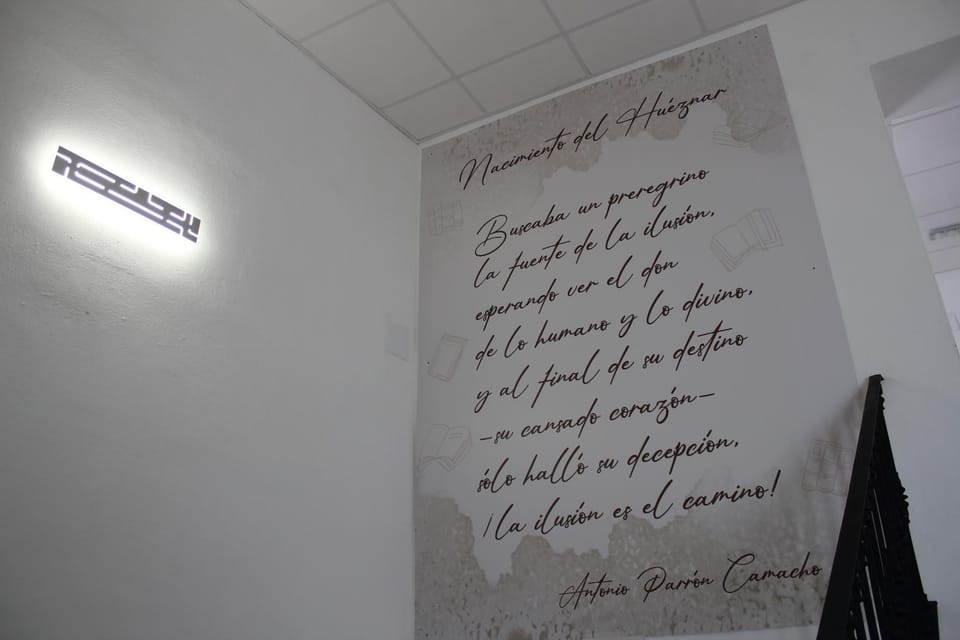 Nacimiento del Huéznar
Buscaba un preregrino
la fuente de la ilusión,
esperando ver el don
de lo humano y lo divino,
y al final de su destino
–su cansado corazón–
sólo halló su decepción,
¡la ilusión es el camino!
Antonio Parrón Camacho